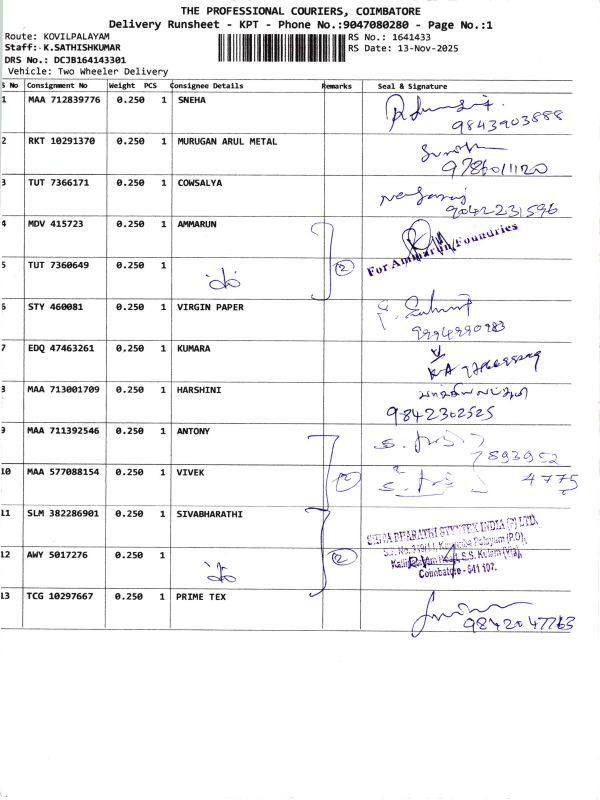 THE PROFESSIONAL COURIERS, COIMBATORE
Delivery Runsheet - KPT - Phone No.:9047080280 - Page No.:1
Route: KOVILPALAYAM
RS No.: 1641433
Staff: K.SATHISHKUMAR
RS Date: 13-Nov-2025
DRS No.: DCJB164143301
Vehicle: Two Wheeler Delivery
S No Consignment No Weight PCS Consignee Details Remarks Seal & Signature
1 MAA 712839776 0.250 1 SNEHA
9843903888
2 RKT 10291370 0.250 1 MURUGAN ARUL METAL
9786011120
3 TUT 7366171 0.250 1 COWSALYA
9042231596
4 MDV 415723 0.250 1 AMMARUN
For Ammarun Foundries
5 TUT 7360649 0.250 1
2
6 STY 460081 0.250 1 VIRGIN PAPER
9994990983
7 EDQ 47463261 0.250 1 KUMARA
8 MAA 713001709 0.250 1 HARSHINI
9842302525
9 MAA 711392546 0.250 1 ANTONY
7893952
10 MAA 577088154 0.250 1 VIVEK
2
4775
11 SLM 382286901 0.250 1 SIVABHARATHI
SHIVA BHARATHI SYNTEX INDIA (P) LTD.
12 AWY 5017276 0.250 1
2
S.S. Kulam (Via),
Coimbatore - 641 107.
13 TCG 10297667 0.250 1 PRIME TEX
9842047763